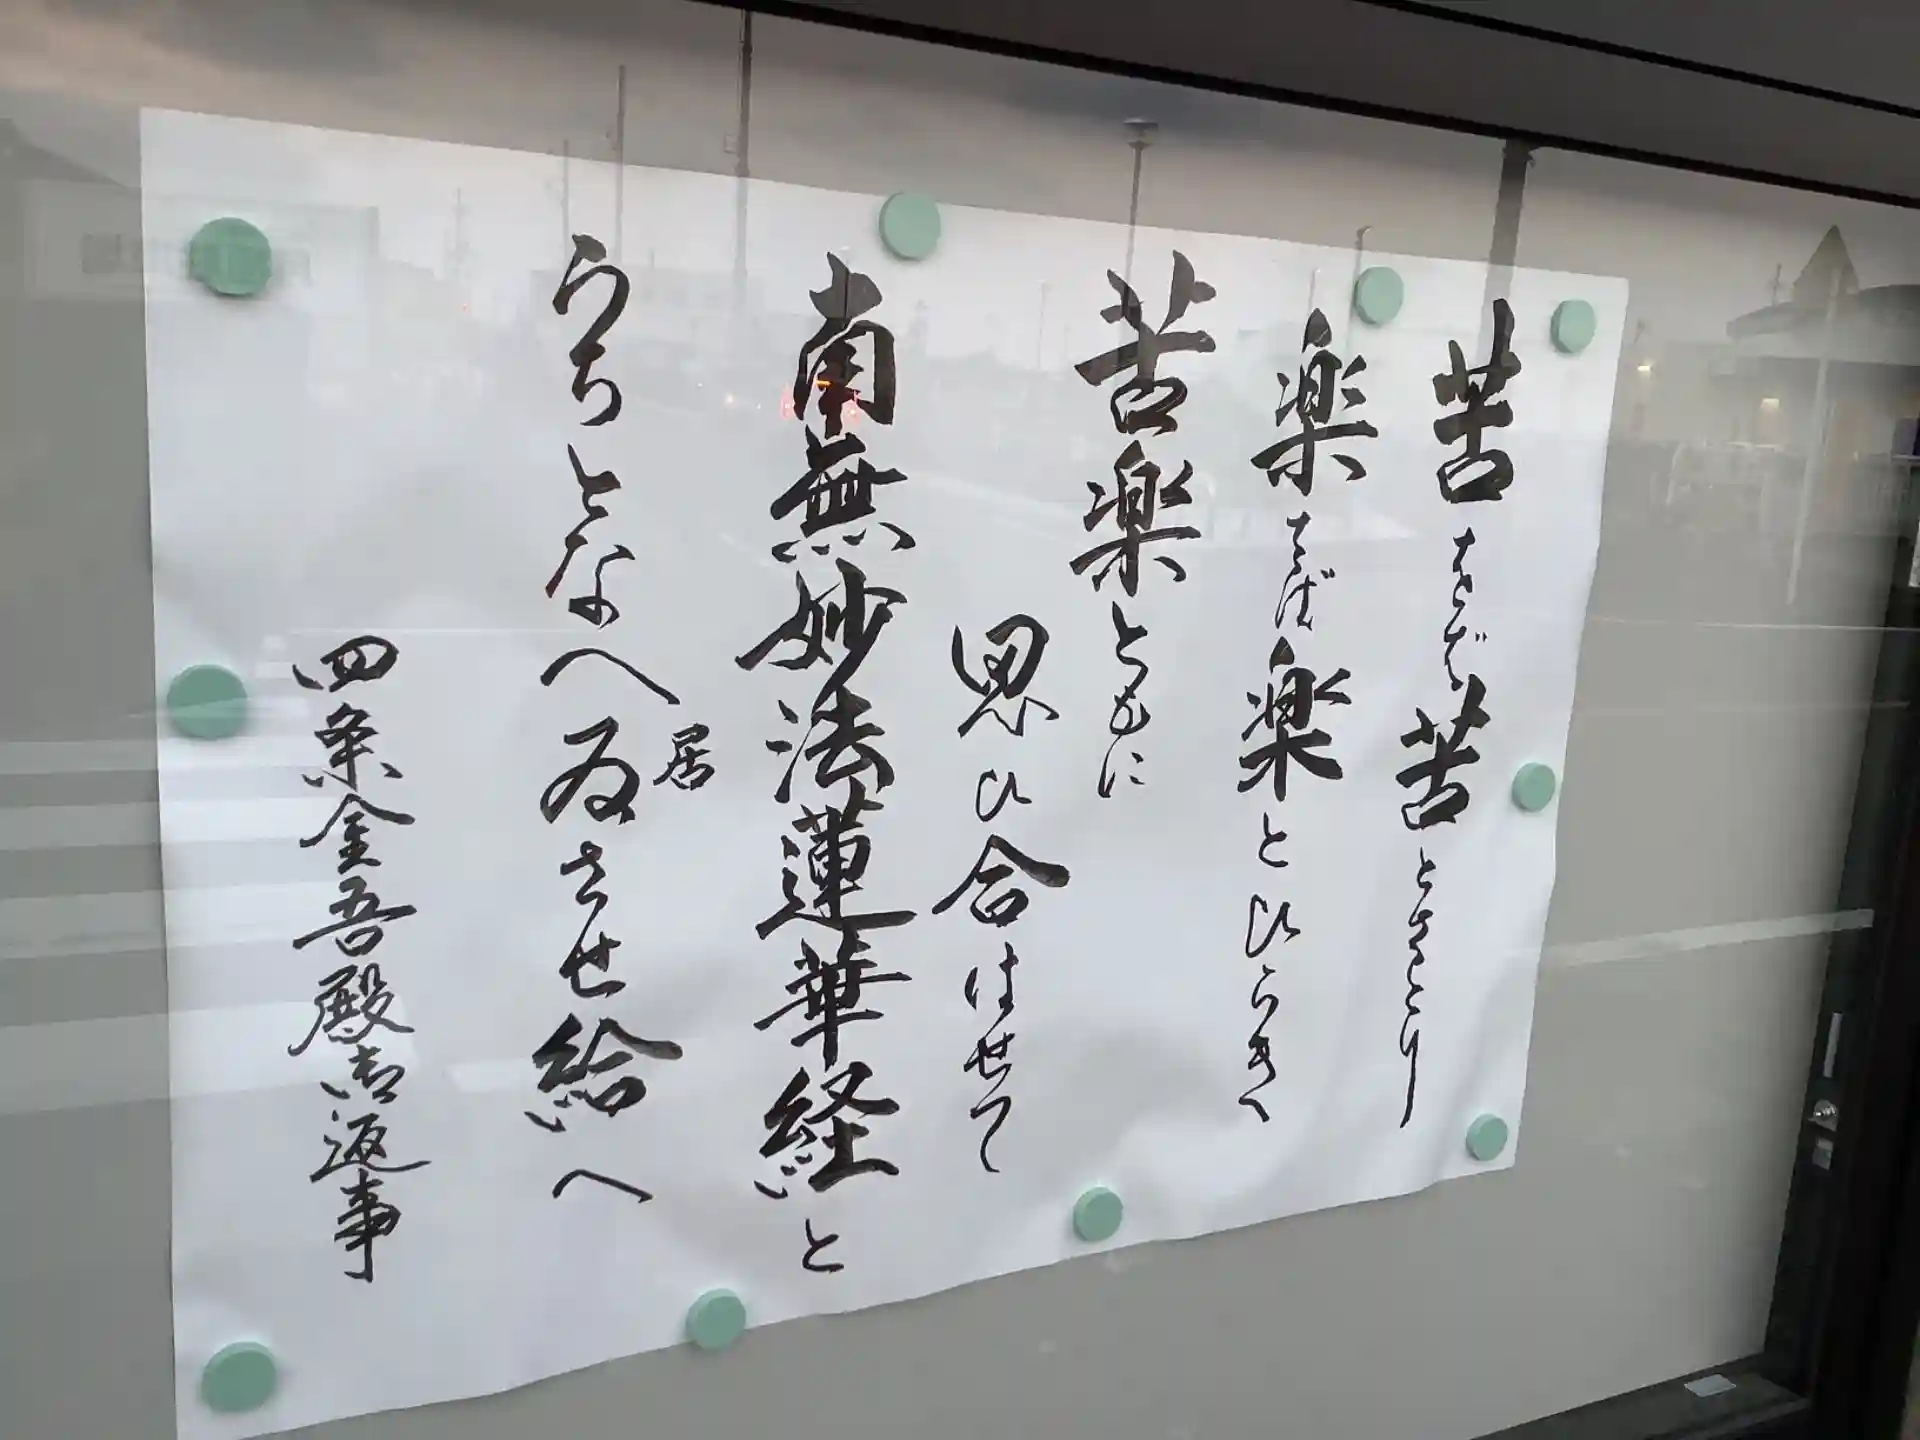 苦をば苦とさとり
楽をば楽とひらき
苦楽ともに
思ひ合はせて
南無妙法蓮華経と
うちとなへゐさせ給へ
居
四条金吾殿御返事